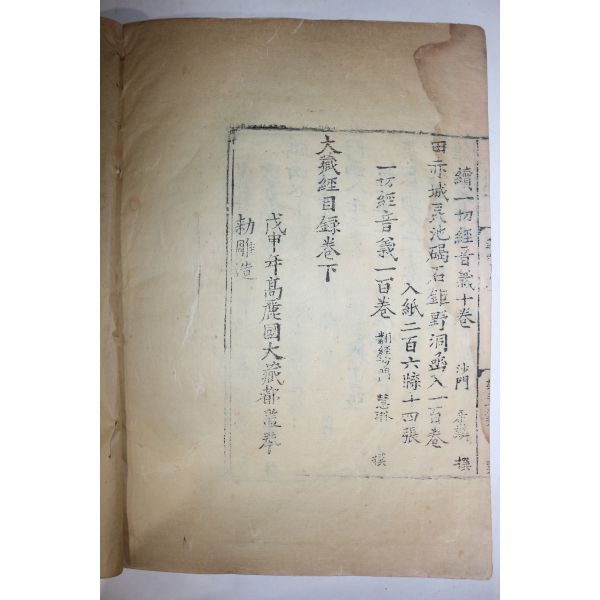 續一切經音義十卷 沙門 希麟 撰
田赤城昆池碣石鉅野洞函入一百卷
入紙二百六牒十四張
一切經音義一百卷 翻經沙門 慧琳 撰
大藏經目錄卷下
戊申年高麗國大藏都監奉
勅雕造